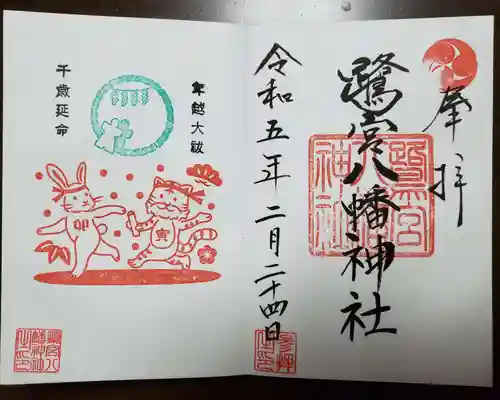 奉拝
鷺宮八幡神社
令和五年二月二十四日
年越大祓
千歳延命
卯
寅
鷺宮
神社